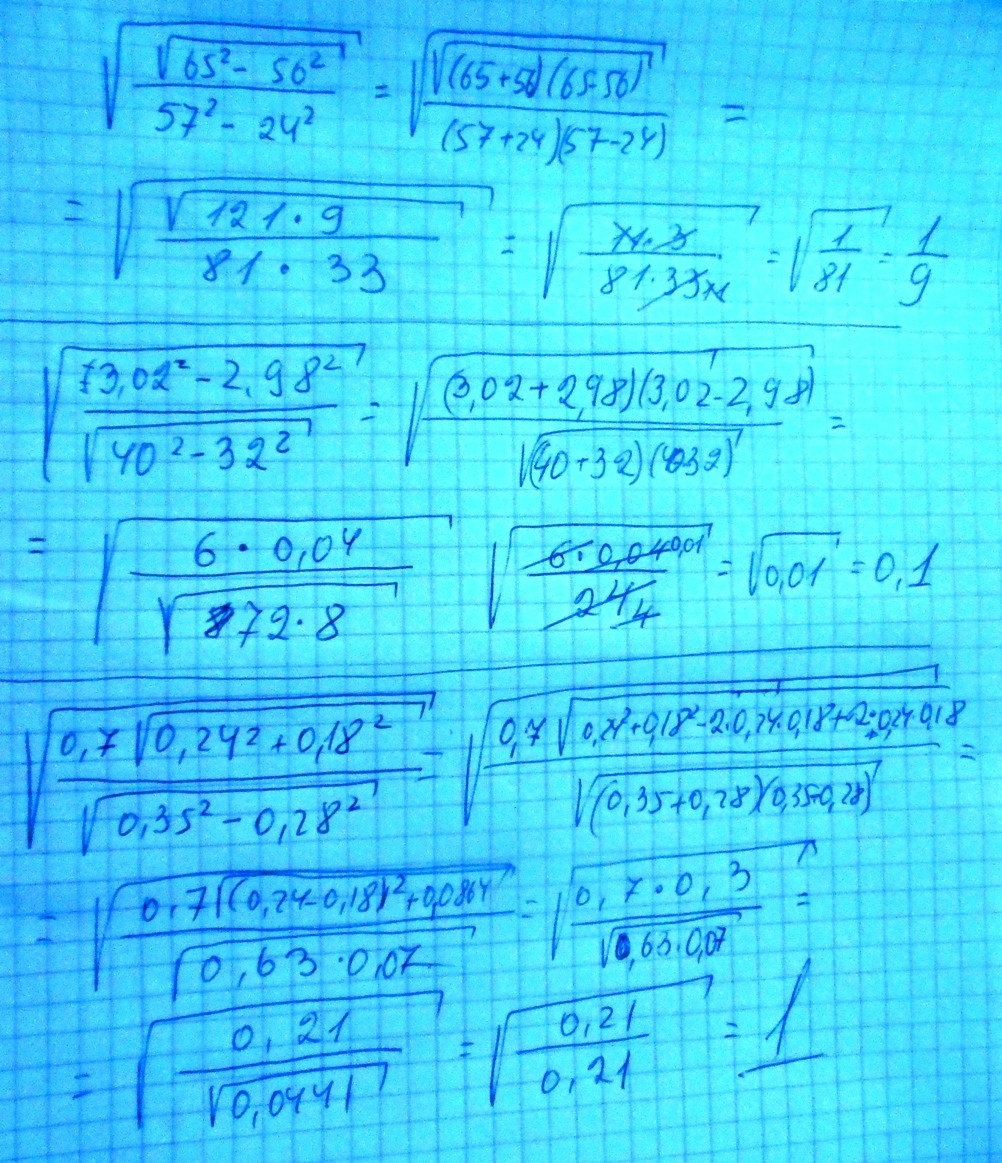 √(√(65² - 56²) / (57² - 24²)) = √(√((65+56)(65-56)) / ((57+24)(57-24))) =
= √(√(121·9) / (81·33)) = √(11·3 / (81·33 11)) = √(1/81) = 1/9
√((3,02² - 2,98²) / √(40² - 32²)) = √((3,02+2,98)(3,02-2,98) / √((40+32)(4032))) =
= √(6·0,04 / √(72·8)) √(6·0,04 0,01 / 24 4) = √(0,01) = 0,1
√(0,7√(0,24² + 0,18²) / √(0,35² - 0,28²)) = √(0,7√(0,24² + 0,18² - 2·0,24·0,18 + 2·0,24·0,18) / √((0,35+0,28)(0,35-0,28))) =
= √(0,7√((0,24-0,18)² + 0,0864) / √(0,63·0,07)) = √(0,7·0,3 / √(0,63·0,07)) =
= √(0,21 / √(0,0441)) = √(0,21 / 0,21) = 1